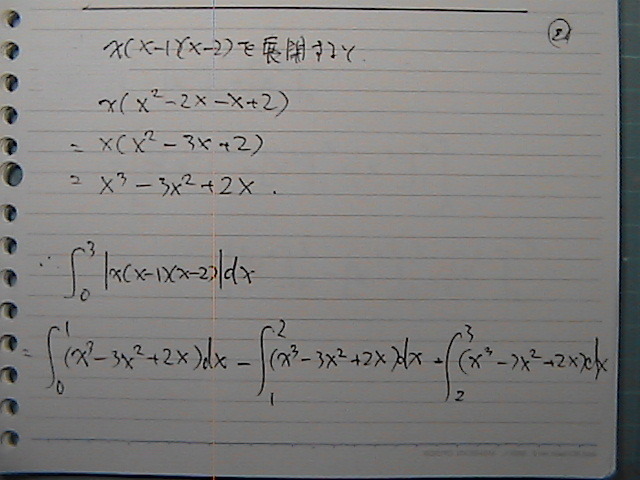 ②
x(x-1)(x-2)を展開すると
x(x²-2x-x+2)
= x(x²-3x+2)
= x³-3x²+2x.
∴ ∫₀³|x(x-1)(x-2)|dx
= ∫₀¹(x³-3x²+2x)dx - ∫₁²(x³-3x²+2x)dx + ∫₂³(x³-3x²+2x)dx